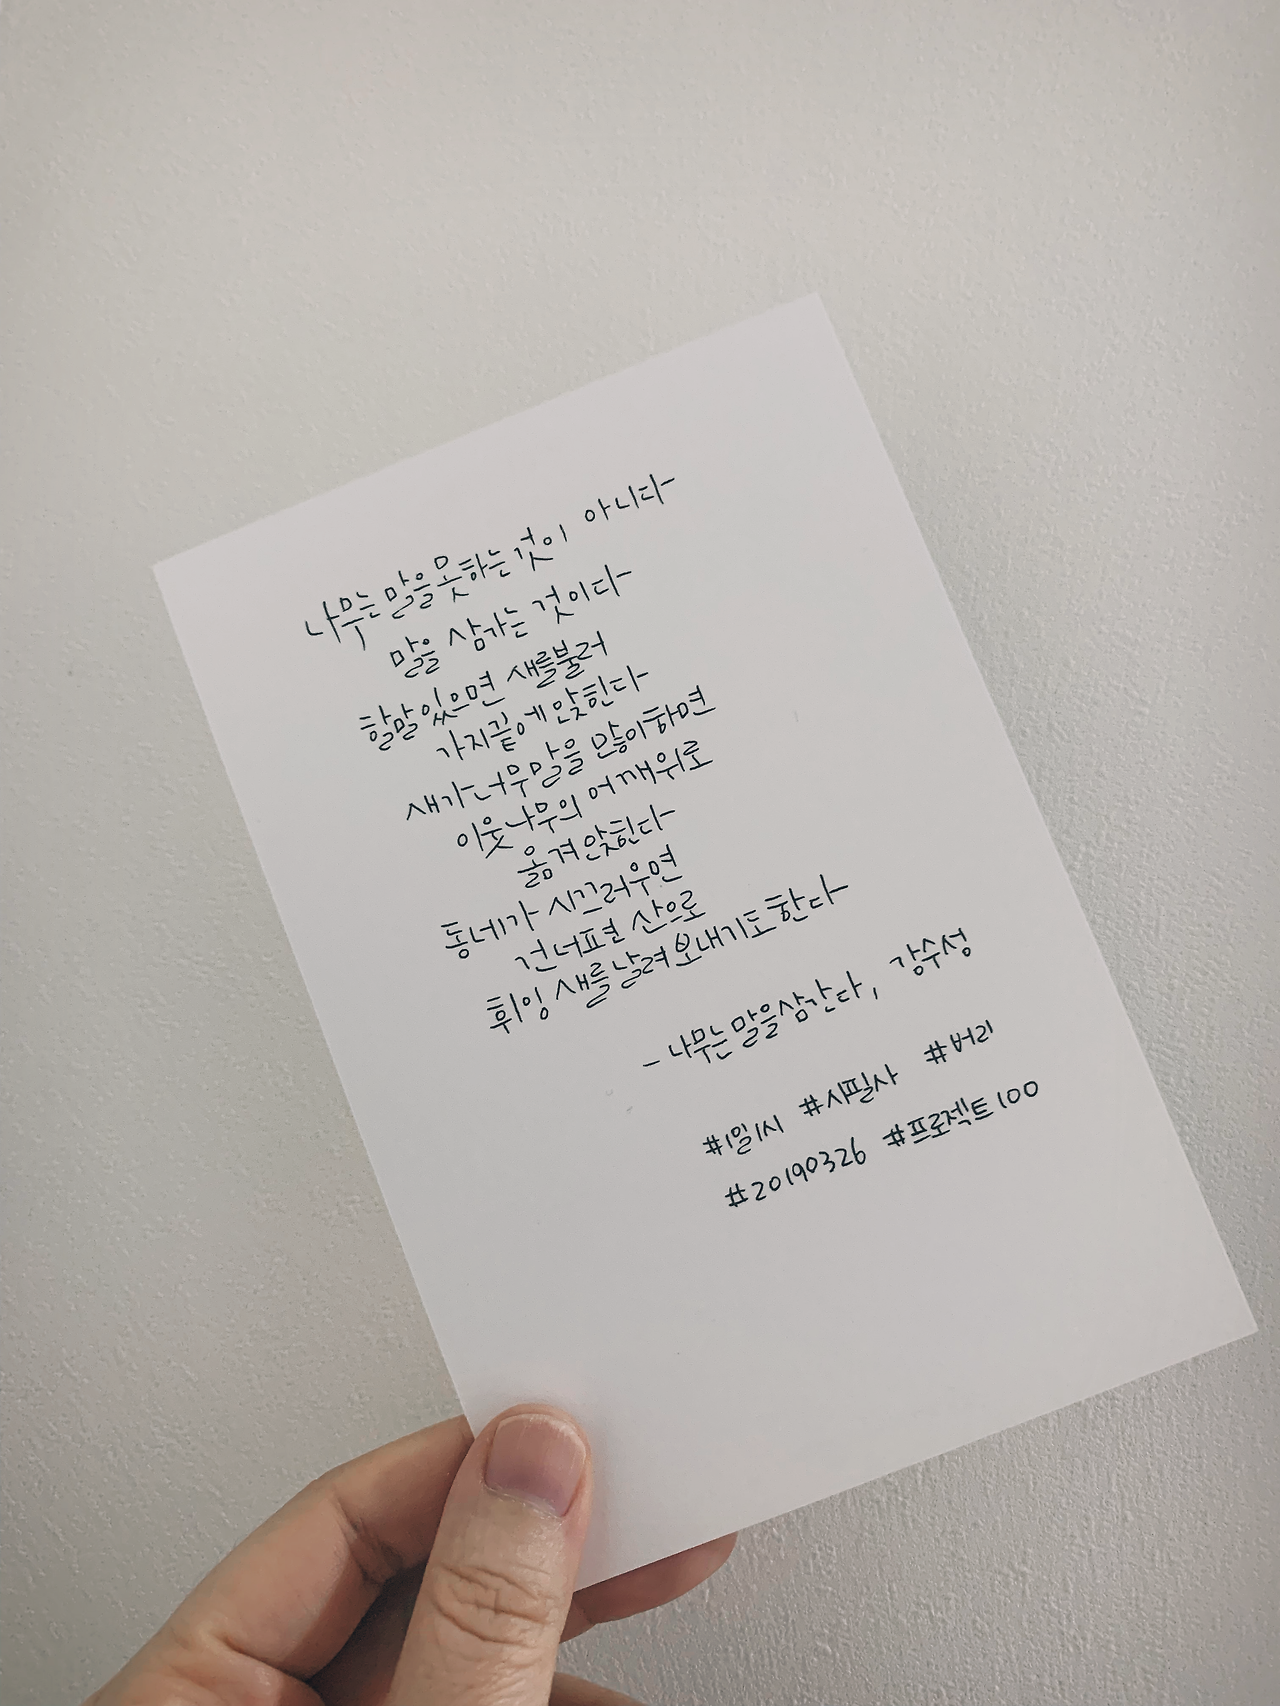 나무는 말을 못하는 것이 아니다
말을 삼가는 것이다
할말 있으면 새를 불러
가지 끝에 앉힌다
새가 너무 말을 많이 하면
이웃 나무의 어깨 위로
옮겨 앉힌다
동네가 시끄러우면
건너편 산으로
휘잉 새를 날려 보내기도 한다
- 나무는 말을 삼간다, 강수성
#1일1시 #시필사 #버리
#20190326 #프로젝트100